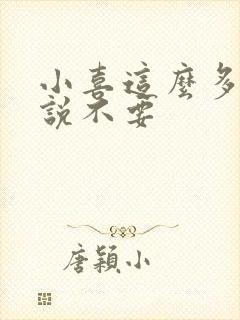 小喜這麼多
說不要
唐穎小